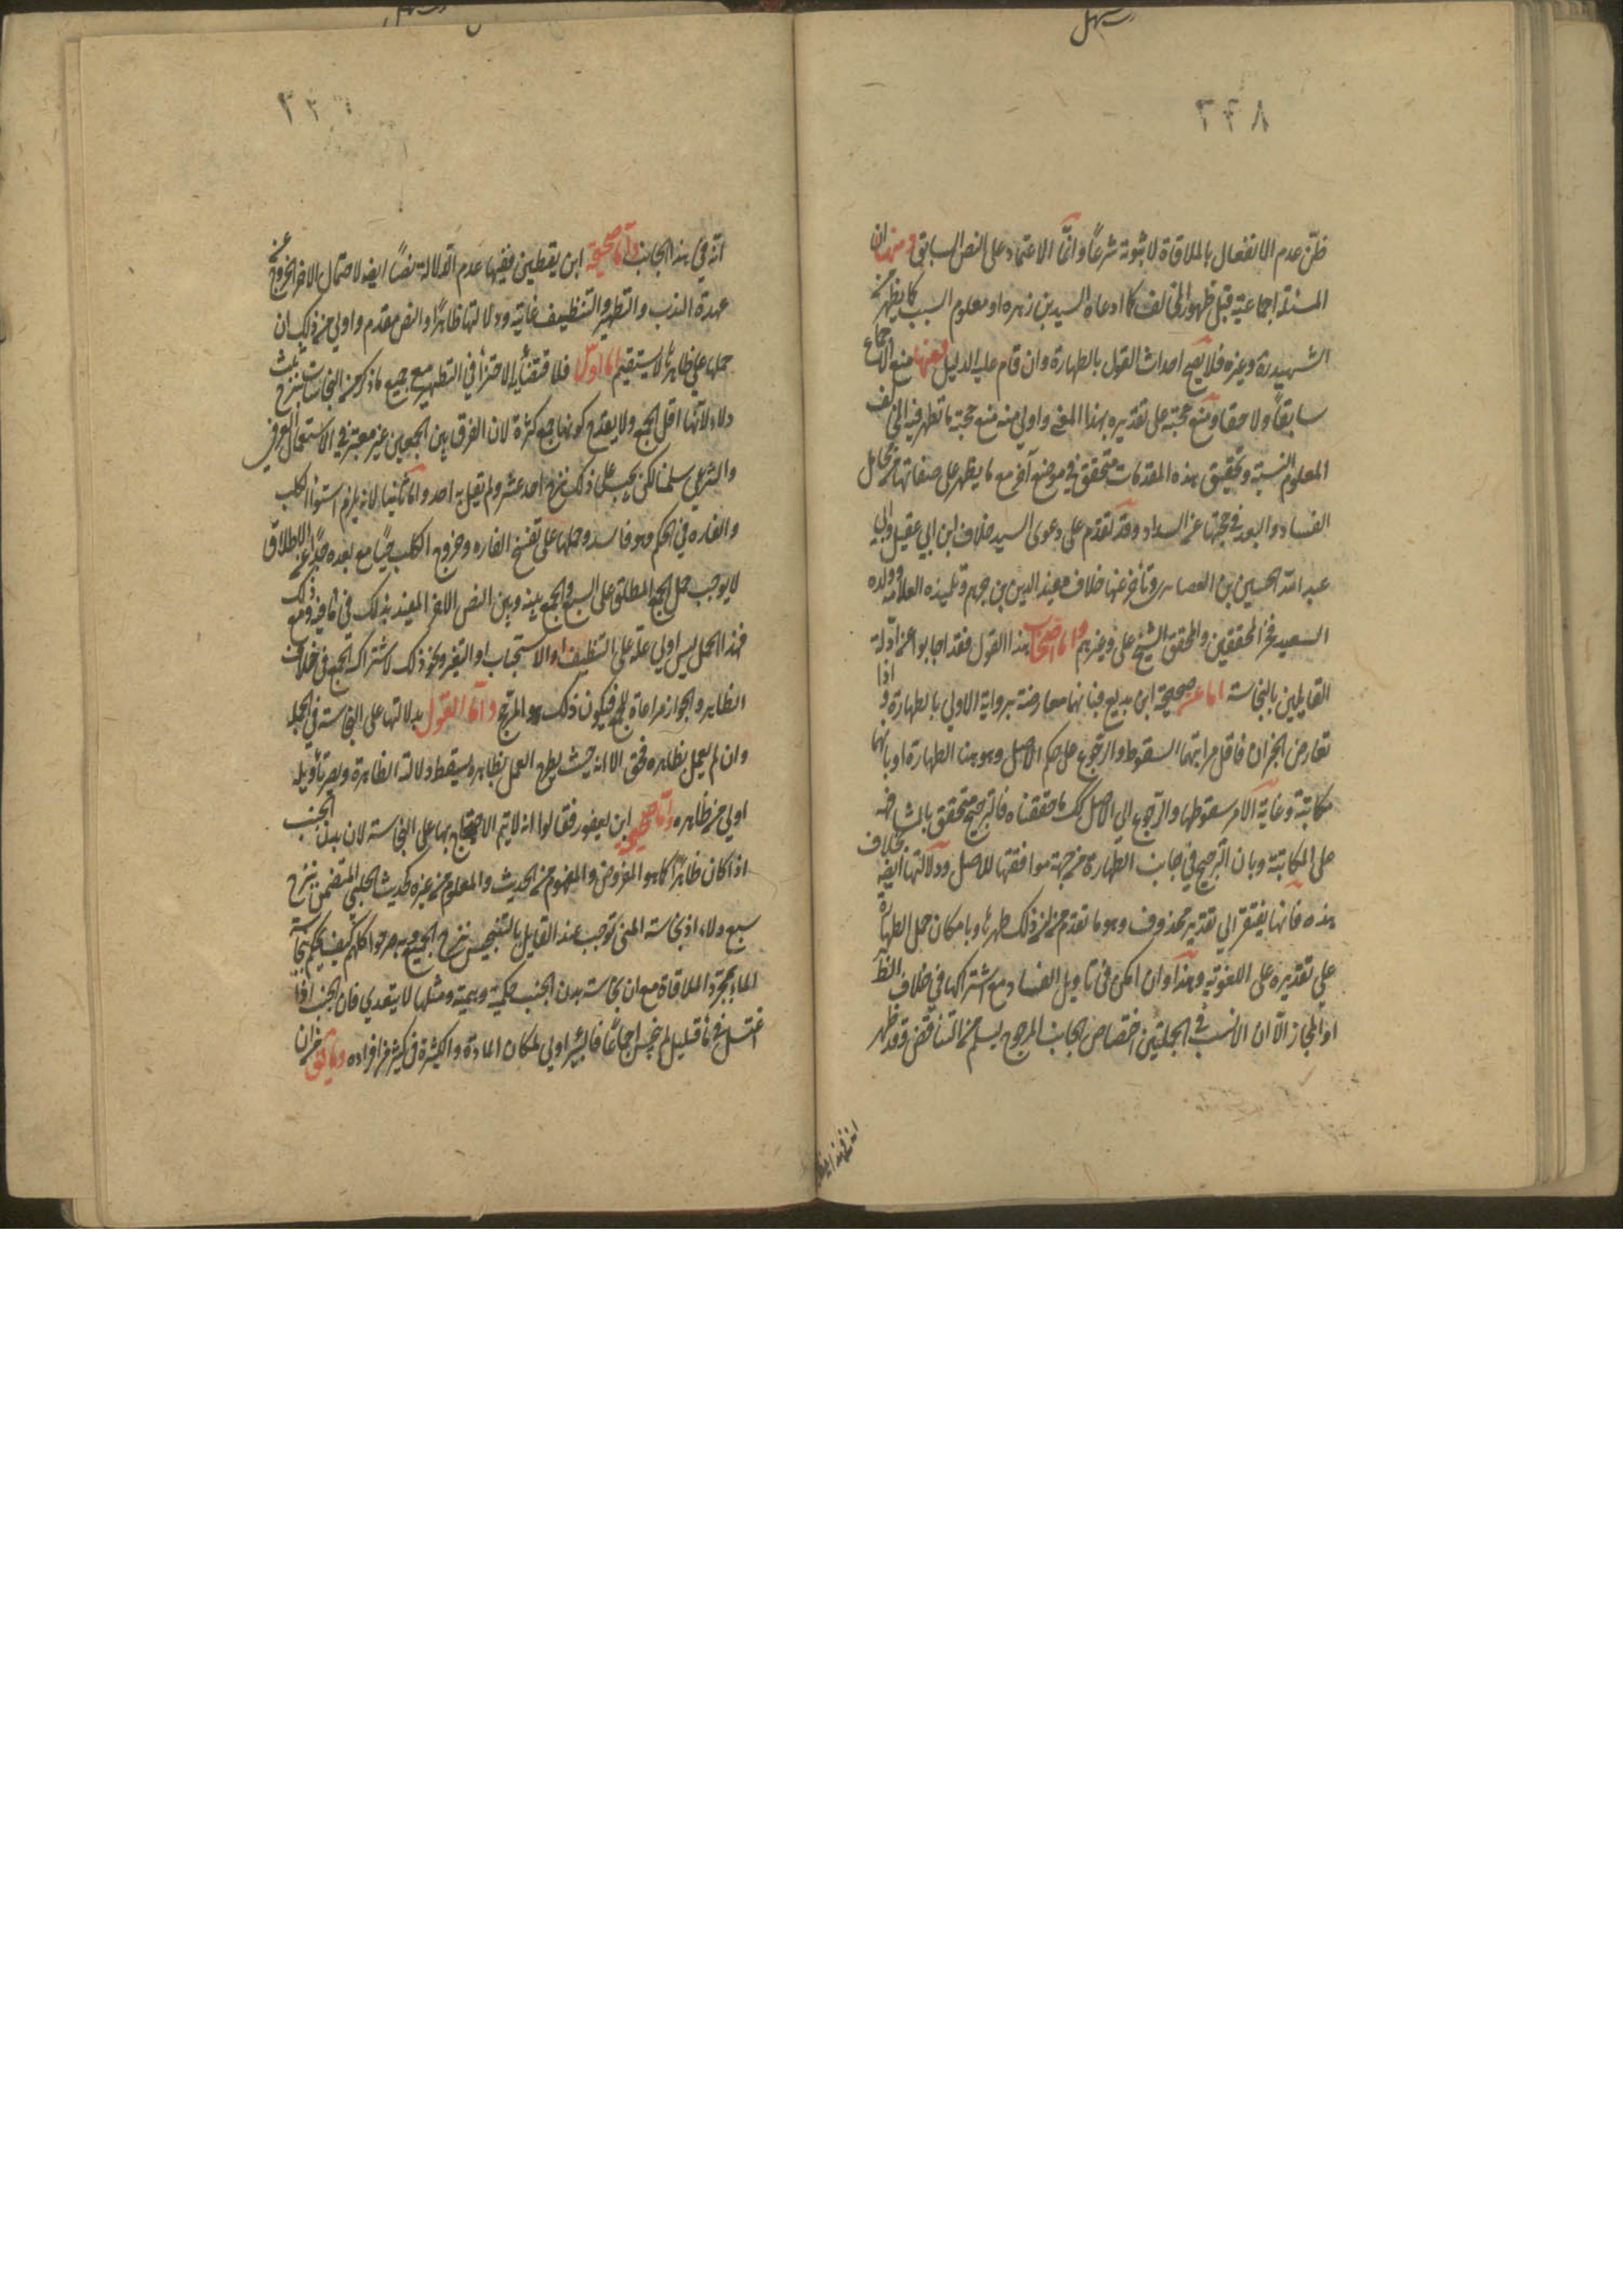 ٢٢٨
ظن عدم الانفعال بالملاقاة لا ثبوته شرعاً وانّما الاعتماد على النص السابق ومنها ان
المسئلة اجماعية قبل ظهور المخالف كما ادعاه السيد بن زهره او معلوم السبب كما يظهر من
الشهيد ره وغيره فلا يصح احداث القول بالطهارة وان قام عليه الدليل فمنها منع الاجماع
سابقاً ولاحقا ومنع حجيته على تقديره بهذا المعنى واولى منه منع حجية ما تظهر فيه المخالف
المعلوم النسبة وتحقيق هذه المقدمات متحقق في موضع آخر مع ما يظهر على صفاتها من مخايل
الفساد والبعد في حجتها عن السداد وقد تقدم على دعوى السيد خلاف ابن ابي عقيل وابي
عبد الله الحسين بن الغضايري وتأخر عنها خلاف مفيد الدين بن جهم وتلميذه العلامة وولده
السعيد فخر المحققين والمحقق الشيخ علي وغيرهم واما اصحاب هذا القول فقد اجابوا عن ادلة
القايلين بالنجاسة اما عن صحيحة ابن بزيع فبانها معارضة برواية الاولى بالطهارة واذا
تعارض الخبران فاقل مراتبهما السقوط والرجوع على حكم الاصل وهو هنا الطهارة او بانها
مكاتبة وغاية الامر سقوطها والرجوع الى الاصل كما حققناه فالترجيح متحقق بالمشافهة
على المكاتبة وبان الترجيح في جانب الطهارة من جهة موافقتها للاصل ودلالتها ايضا بخلاف
هذه فانها يفتقر الى تقدير محذوف وهو ما تقدم من لزم ذلك طهرها وبامكان حمل الطهارة
على تقديره على اللغوية وهذا وان امكن في تاويل الفساد مع اشتراكها في خلاف الظ
او المجاز الا ان الانسب في الجملتين اختصاص الجانب المرجوح يسلم من التناقض وقد ظهر
انه في هذا الجانب واما صحيحة ابن يقطين ففيها عدم الدلالة نصاً ايضا لاحتمال الامر الخروج عن
عهدة الندب والتطهير والتنظيف غايته ودلالتها ظاهراً والنص مقدم واولى من ذلك ان
حملها على ظاهرها لا يستقيم اما اولا فلاقتضائها الاجتزاء في التطهير مع جميع ما ذكر من النجاسات بنزح ثلث
دلاء لانها اقل الجمع ولا يقدح كونها جمع كثرة لان الفرق بين الجمعين غير معتبر في الاستعمال العرفي
والشرعي سلمنا لكن يجب على ذلك نزح احد عشر ولم يقل به احد واما ثانيا لانه يلزم استواء الكلب
والفاره في الحكم وهو فاسد وحملها على تفسخ الفاره وخروج الكلب حيّاً مع بعده جداً عن الاطلاق
لا يوجب حمل الجمع المطلق على السبع والجمع بينه وبين النص الاخر المقيد بذلك في ما فيه ومع ذلك
فهذا الحمل ليس اولى عن حمله على التنظيف او الاستحباب او التغير ونحو ذلك لاشتراك الجمع في خلاف
الظاهر والجواز مراعاة للجمع فيكون ذلك هو المرجح واما القول بدلالتها على النجاسة في الجملة
وان لم يعمل بظاهره فحق الا انه حيث يطرح العمل بظاهره يسقط دلالته الظاهرة ويصير تأويله
اولى من ظاهره واما صحيحة ابن يعفور فقالوا انه لا يتم الاحتجاج بها على النجاسة لان بدن الجنب
اذا كان طاهراً كما هو المفروض والمفهوم من الحديث والمعلوم من غيره كحديث الحلبي المتضمن نزح
سبع دلاء اذ نجاسة المني توجب عند القايل بالتنجيس نزح الجميع وبه صرحوا كلهم كيف يحكم بنجاسة
الماء بمجرد الملاقاة مع ان نجاسة بدن الجنب حكمية وهمية ومثلها لا يتعدى فان الجنب اذا
اغتسل في ماء قليل لم ينجس اجماعا فالبئر اولى لمكان المادة والكثرة في كثير من افراده وما يق من ان